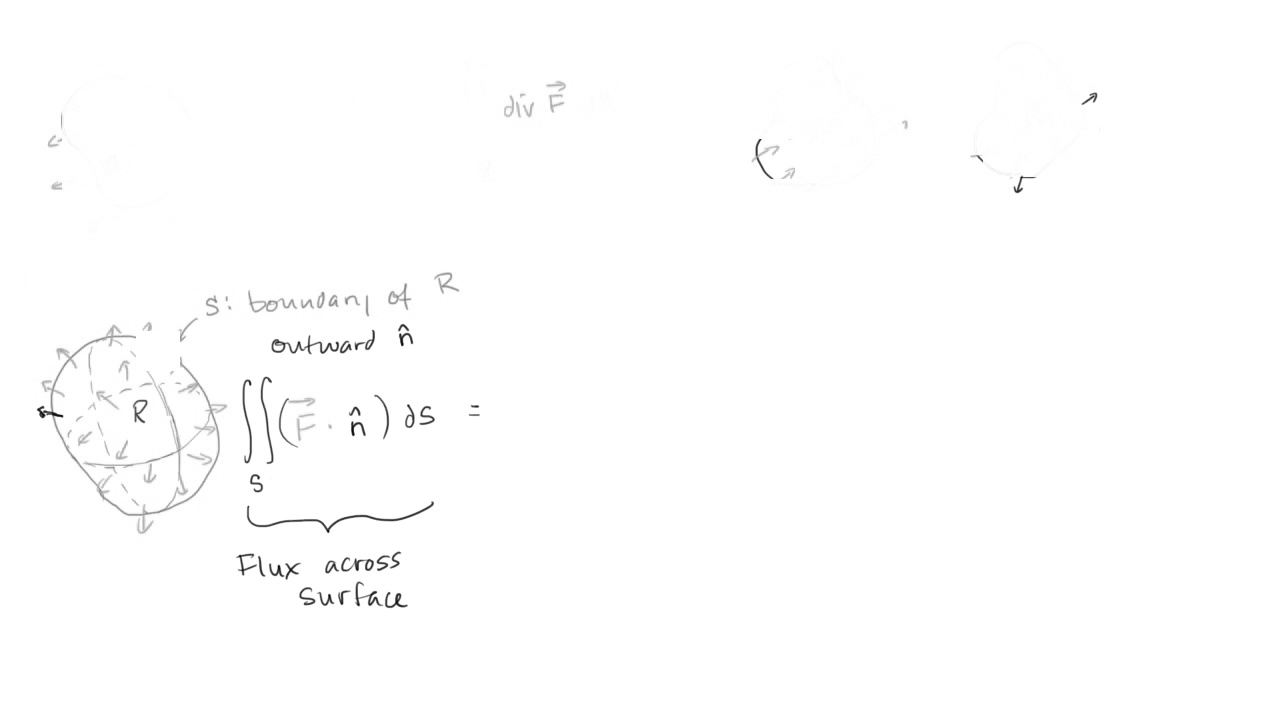 div F⃗
S: boundary of R
outward n̂
R
∬ (F⃗ · n̂) dS =
S
Flux across
surface